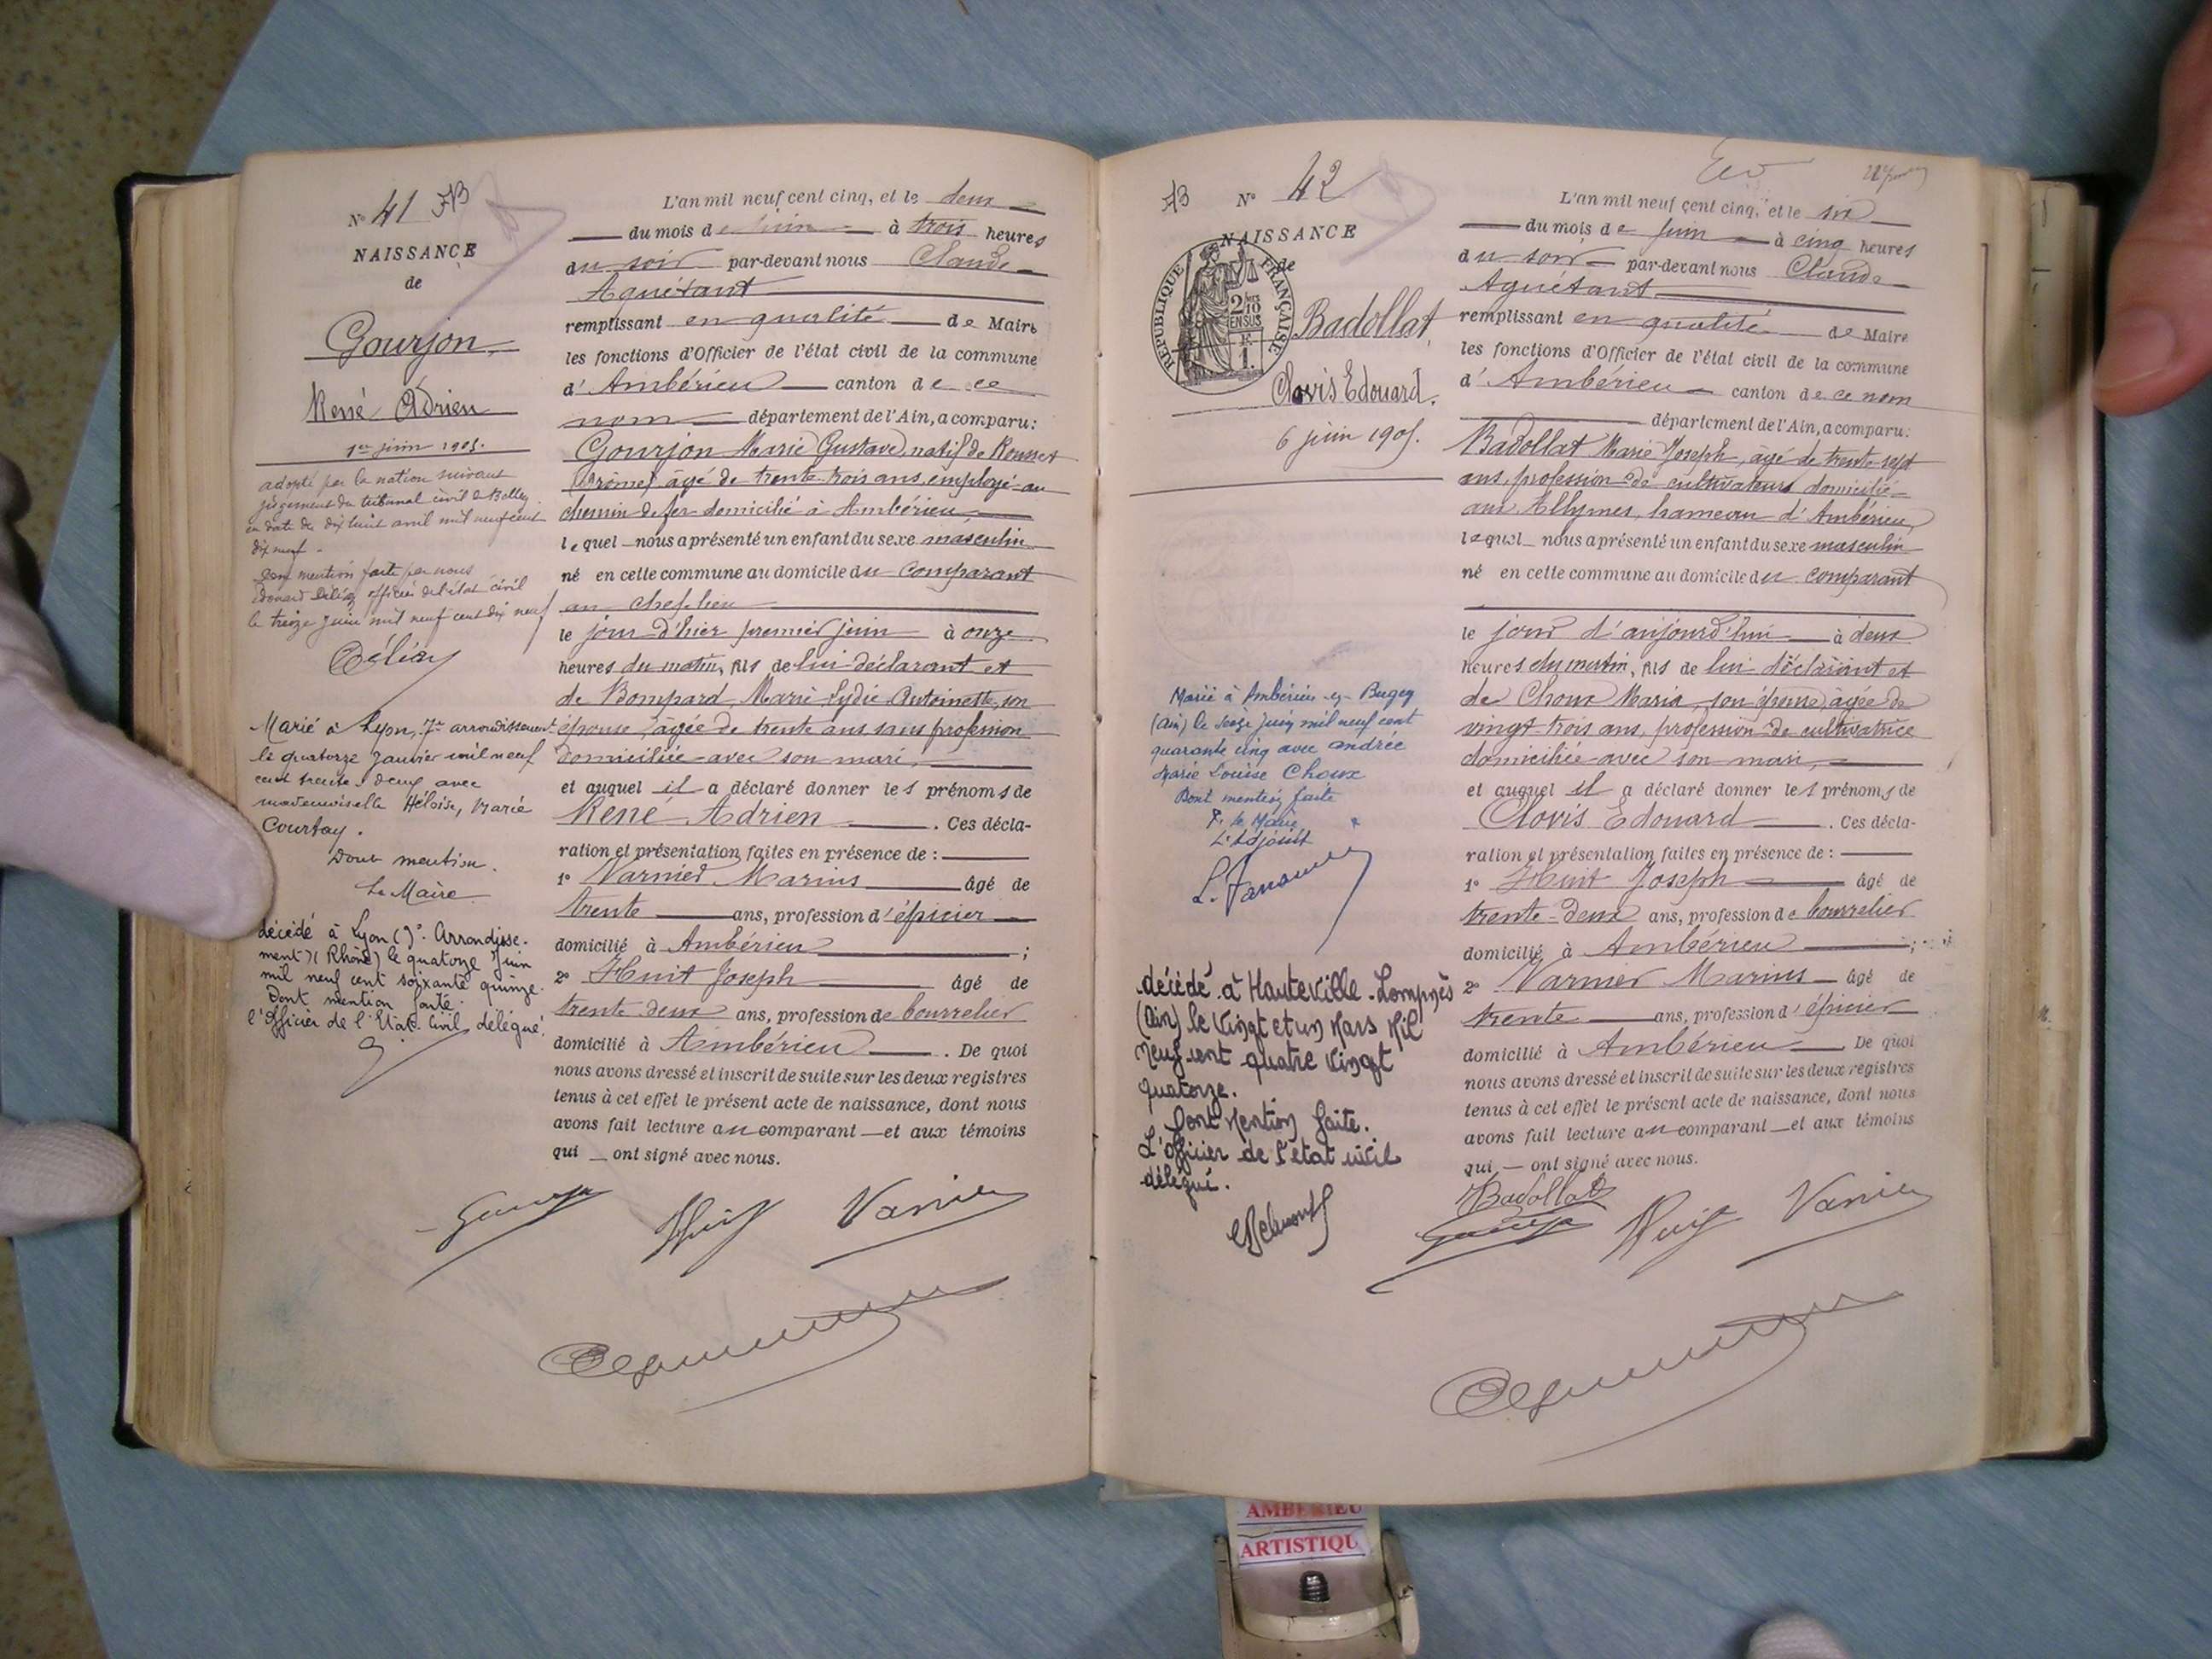 N° 41 AB
NAISSANCE
de
Gourjon
René Adrien
1er juin 1905.
adopté par la nation suivant
jugement du tribunal civil de Belley
en date du dix huit avril mil neuf cent
dix neuf.
mention faite par nous
officier de l'état civil
le treize juin mil neuf cent dix neuf
Marié à Lyon, 7e arrondissement
le quatorze Janvier mil neuf
cent trente deux avec
mademoiselle Héloïse, Marie
Courtay.
Dont mention.
Le Maire
décédé à Lyon (9e Arrondisse-
ment) (Rhône) le quatorze Juin
mil neuf cent soixante quinze.
Dont mention faite.
l'Officier de l'Etat Civil délégué.
L'an mil neuf cent cinq, et le deux
du mois de juin à trois heures
du soir par-devant nous Claude
Aguétant
remplissant en qualité de Maire
les fonctions d'Officier de l'état civil de la commune
d'Ambérieu canton de ce
nom département de l'Ain, a comparu:
Gourjon Marie Gustave, natif de Rousset
(Drôme) âgé de trente-trois ans, employé au
chemin de fer domicilié à Ambérieu
lequel nous a présenté un enfant du sexe masculin
né en cette commune au domicile du comparant
au chef-lieu
le jour d'hier premier juin à onze
heures du matin, fils de lui déclarant et
de Bompard, Marie Lydie Antoinette, son
épouse, âgée de trente ans sans profession
domiciliée avec son mari,
et auquel il a déclaré donner les prénoms de
René Adrien . Ces décla-
ration et présentation faites en présence de :
1° Varnier Marius âgé de
trente ans, profession d'épicier
domicilié à Ambérieu ;
2° Huit Joseph âgé de
trente deux ans, profession de bourrelier
domicilié à Ambérieu . De quoi
nous avons dressé et inscrit de suite sur les deux registres
tenus à cet effet le présent acte de naissance, dont nous
avons fait lecture au comparant et aux témoins
qui ont signé avec nous.
Huit Varnier
AB N° 42
NAISSANCE
de
RÉPUBLIQUE FRANÇAISE
2/10
EN SUS
Badollat
Clovis Edouard.
6 juin 1905.
Marié à Ambérieu-en-Bugey
(Ain) le seize juin mil neuf cent
quarante cinq avec Andrée
Marie Louise Choux
Dont mention faite
P. le Maire
L'Adjoint
décédé à Hauteville-Lompnès
(Ain) le vingt et un Mars Mil
Neuf cent quatre vingt
quatorze.
Dont Mention faite.
L'officier de l'état civil
délégué.
L'an mil neuf cent cinq, et le six
du mois de juin à cinq heures
du soir par-devant nous Claude
Aguétant
remplissant en qualité de Maire
les fonctions d'Officier de l'état civil de la commune
d'Ambérieu canton de ce nom
département de l'Ain, a comparu:
Badollat Marie Joseph, âgé de trente sept
ans, profession de cultivateur domicilié
aux Allymes, hameau d'Ambérieu,
lequel nous a présenté un enfant du sexe masculin
né en cette commune au domicile du comparant
le jour d'aujourd'hui à deux
heures du matin, fils de lui déclarant et
de Choux Maria, son épouse âgée de
vingt-trois ans, profession de cultivatrice
domiciliée avec son mari,
et auquel il a déclaré donner les prénoms de
Clovis Edouard . Ces décla-
ration et présentation faites en présence de :
1° Huit Joseph âgé de
trente-deux ans, profession de bourrelier
domicilié à Ambérieu ;
2° Varnier Marius âgé de
trente ans, profession d'épicier
domicilié à Ambérieu De quoi
nous avons dressé et inscrit de suite sur les deux registres
tenus à cet effet le présent acte de naissance, dont nous
avons fait lecture au comparant et aux témoins
qui ont signé avec nous.
Badollat
Huit Varnier
AMBERIEU
ARTISTIQU